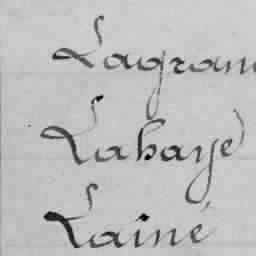 Lagran
Lahaye
Lainé